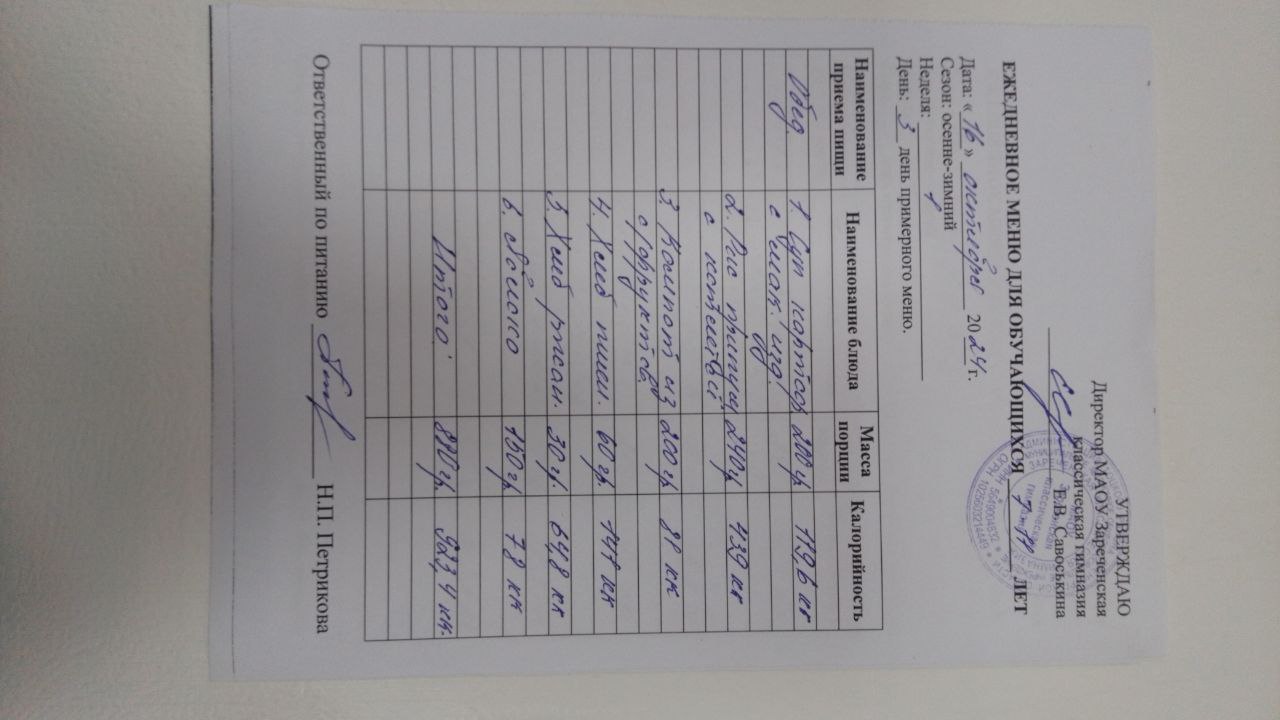 УТВЕРЖДАЮ
Директор МАОУ Зареченская
классическая гимназия
Е.В. Савоськина
ЕЖЕДНЕВНОЕ МЕНЮ ДЛЯ ОБУЧАЮЩИХСЯ 7-11 ЛЕТ
Дата: «16» октября 2024г.
Сезон: осенне-зимний
Неделя: 1
День: 3 день примерного меню.
Наименование приема пищи Наименование блюда Масса порции Калорийность
Обед 1. Суп картоф 200гр 119,6 кк
с мак. изд.
2. Рис припущ 240гр 439 кк
с котлетой
3. Компот из 200гр
с/фруктов
4. Хлеб пшен. 60гр. 141 кк
5. Хлеб ржан. 30гр. 64,8 кк
6. яблоко 150гр 78 кк
Итого: 923,4 кк.
Ответственный по питанию Н.П. Петрикова